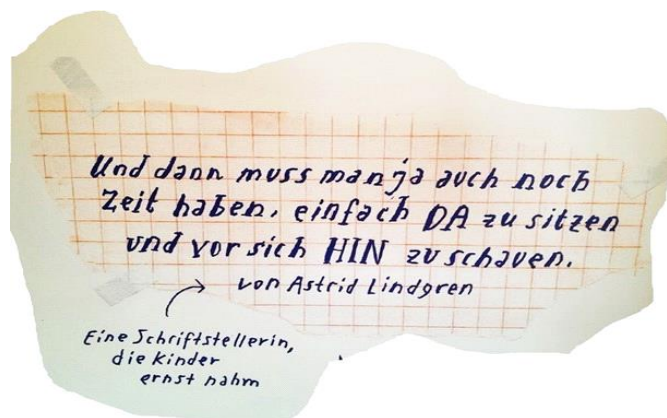 Und dann muss man ja auch noch
Zeit haben, einfach DA zu sitzen
und vor sich HIN zu schauen.
von Astrid Lindgren
Eine Schriftstellerin,
die Kinder
ernst nahm